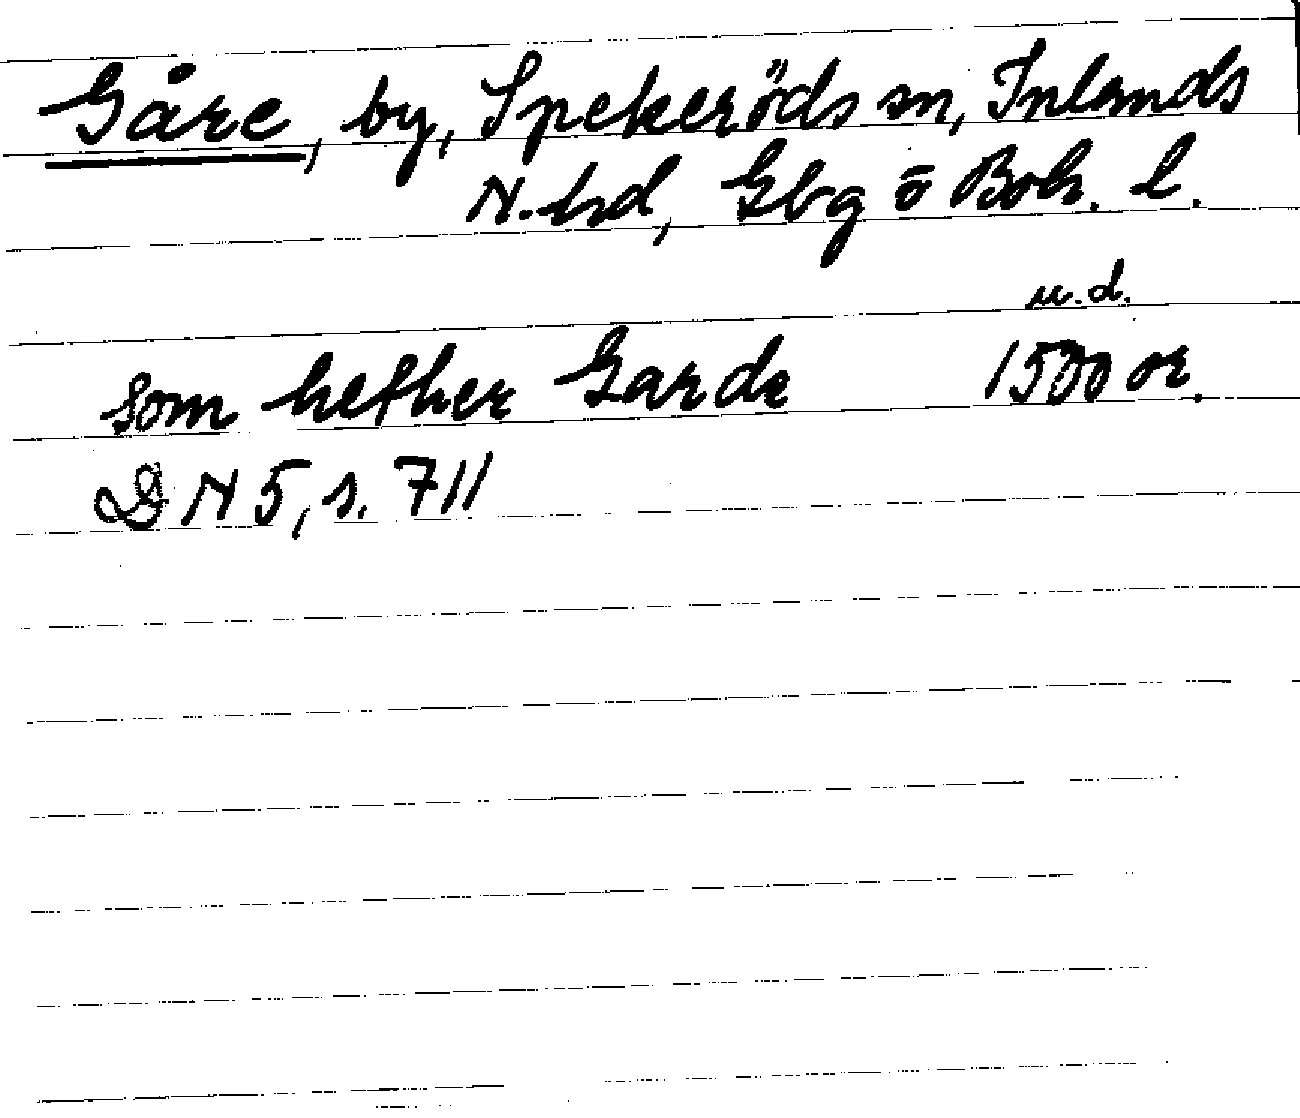 Gåre, by, Spekeröds sn, Inlands
N. hd, Gbg o Boh. l.
u.d.
som hether Garde 1500 or.
DN 5, s. 711